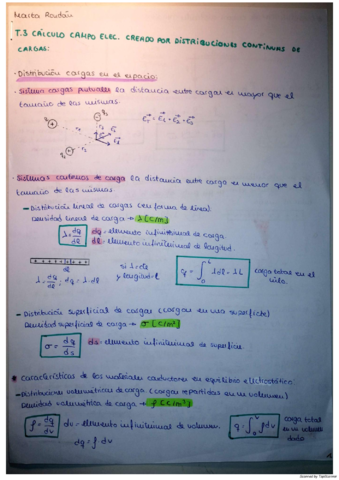 Marta Roldán
T.3 CÁLCULO CAMPO ELEC. CREADO POR DISTRIBUCIONES CONTINUAS DE
CARGAS:
· Distribución cargas en el espacio:
- Sistema cargas puntuales la distancia entre cargas es mayor que el
tamaño de las mismas.
- Sistemas continuos de carga la distancia entre carga es menor que el
tamaño de las mismas
- Distribución lineal de cargas (en forma de línea)
Densidad lineal de carga → λ (C/m)
λ = dq/dl
dq = elemento infinitesimal de carga
dl = elemento infinitesimal de longitud.
λ = dq/dl ; dq = λ·dl
si λ = cte
y longitud = L
q = ∫₀ᴸ λdl = λ·L
carga total en el
hilo.
- Distribución superficial de cargas (cargas en una superficie)
Densidad superficial de carga → σ [C/m²]
σ = dq/ds
ds = elemento infinitesimal de superficie
Características de los materiales conductores en equilibrio electrostático
- Distribuciones volumétricas de carga (cargas repartidas en un volumen)
Densidad volumétrica de carga → ρ [C/m³]
ρ = dq/dv
dv = elemento infinitesimal de volumen
dq = ρ dv
carga total
en un volumen
dado.